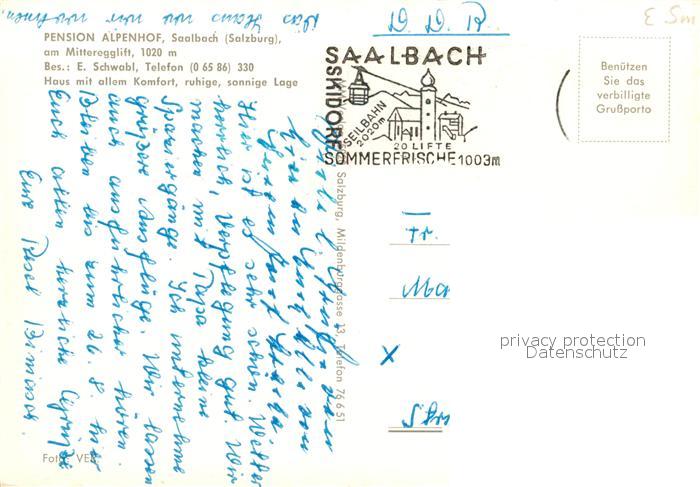 Das Haus wo wir wohnen.
PENSION ALPENHOF, Saalbach (Salzburg),
am Mittereggllift, 1020 m
Bes.: E. Schwabl, Telefon (0 65 86) 330
Haus mit allem Komfort, ruhige, sonnige Lage
D. D. R.
E 5m
SAALBACH
SKIDORF
SEILBAHN
2020m
20 LIFTE
SOMMERFRISCHE 1003m
Benützen
Sie das
verbilligte
Grußporto
Salzburg, Mildenburggasse 13, Telefon 76 6 51
Hier ist es sehr schön. Wetter
herrlich, Verpflegung gut. Wir
machen mit Papa kleine
Spaziergänge. Ich unternehme
größere Ausflüge. Wir lassen
auch ausführlicher hören.
Bleiben bis zum 26. 8. hier
Euch allen herzliche Grüße
Eure
Fr.
Ma
X
privacy protection
Datenschutz
Foto: VER